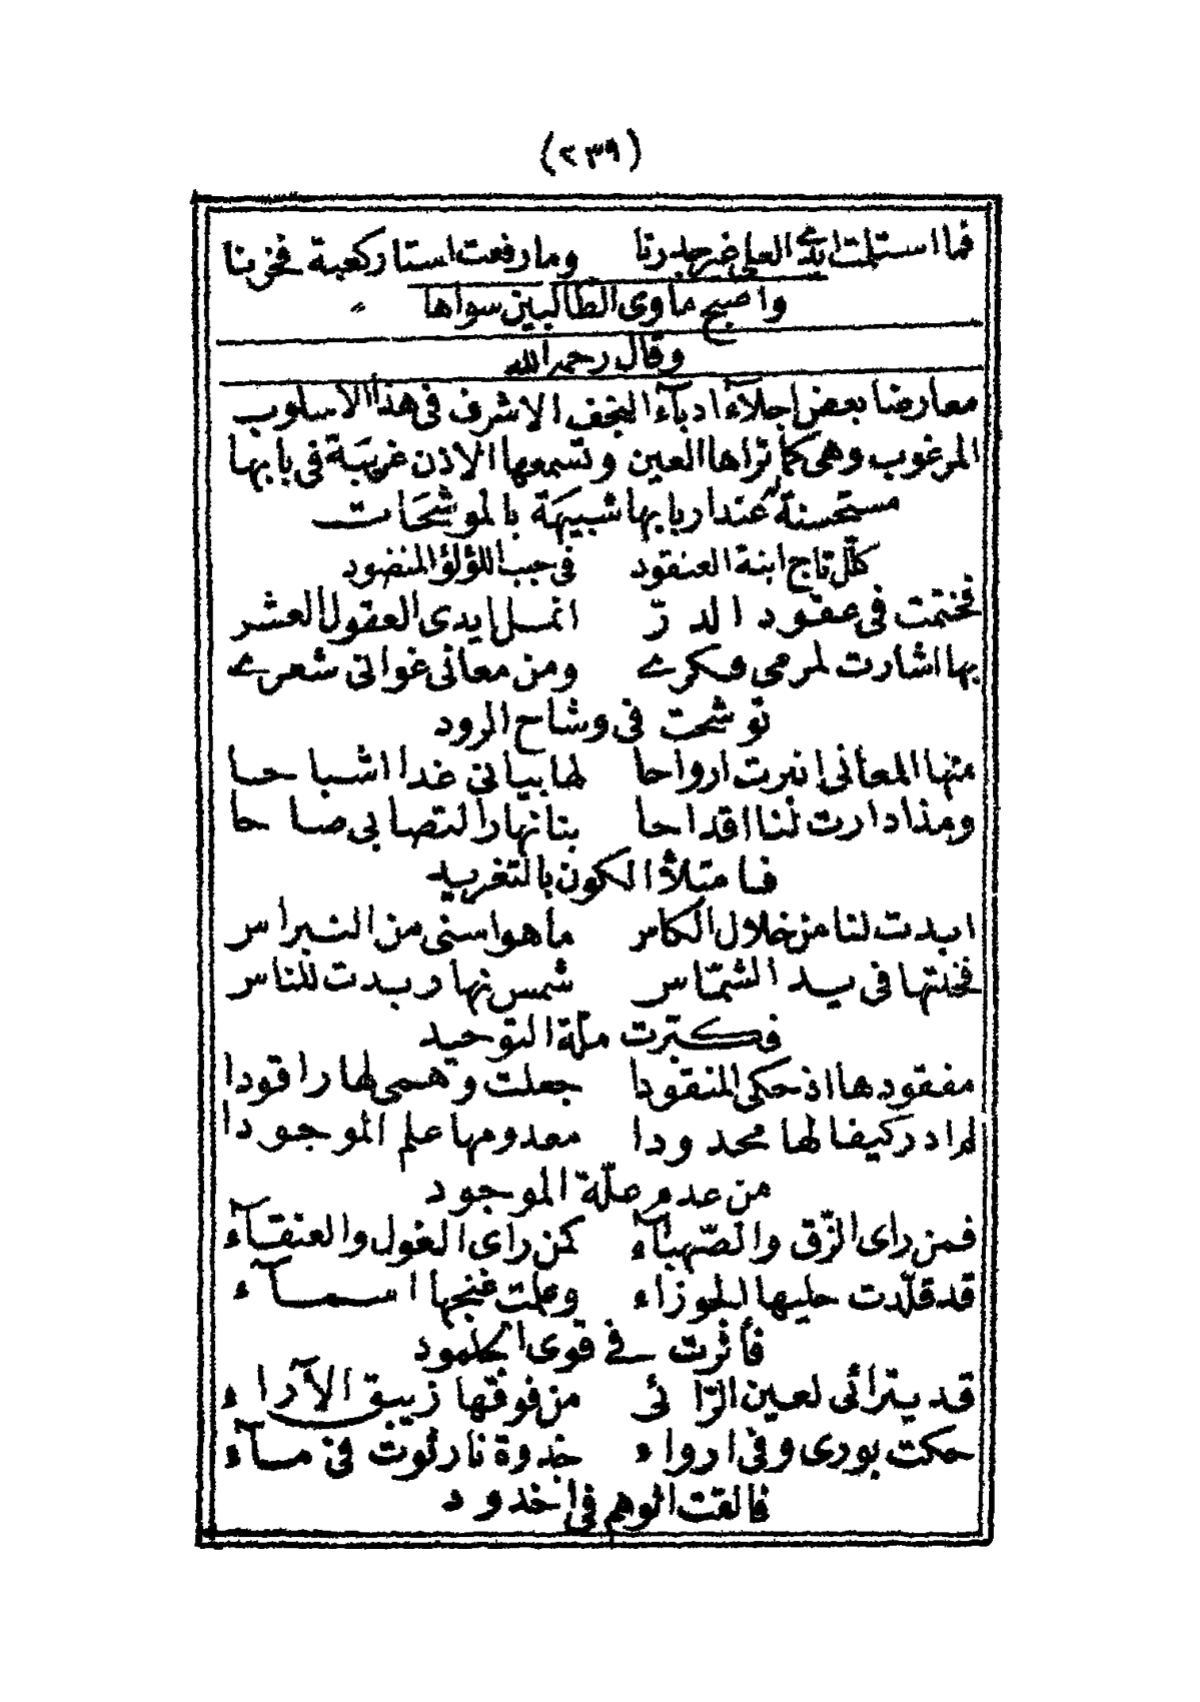 (٢٣٩)
فما استلمت ايدى العلى غير جدرنا ومارفعت استار كعبة فخرنا
واصبح ماوى الطالبين سواها
وقال رحمه الله
معارضا بعض اجلآء ادبآء النجف الاشرف فى هذا الاسلوب
المرغوب وهى كما تراها العين وتسمعها الاذن غريبة فى بابها
مستحسنة عند اربابها شبيهة بالموشحات
كلّل تاج ابنة العنقود فى حبب اللؤلؤ المنضود
فختمت فى عقود الدرّ انمل ايدى العقول العشر
بها اشارت لمرمى فكرى ومن معانى غوانى شعرى
توشحت فى وشاح الرود
منها المعانى انبرت ارواحا لها بيانى غدا اشباحا
ومذ ادارت لنا اقداحا بنا نهار التصابى صاحا
فامتلأ الكون بالتغريد
ابدت لنا من خلال الكاس ماهو اسنى من النبراس
فخلتها فى يد الشمّاس شمس نهار بدت للناس
فكبّرت ملّة التوحيد
مفقودها اذ حكى المنقودا جعلت وهمى لها راقودا
لم ادر كيفا لها محدودا معدومها علم الموجودا
من عدم علّة الموجود
فمن راى الزّق والصّهبآء كمن راى الغول والعنقآء
قد قلّدت حليها الجوزاء وعلمت غنجها اسمآء
فأثرت فى قوى الجلمود
قد يترائى لعين الرّائى من فوقها زيبق الآراء
حكت بورى وفى ارواء جذوة نار ثوت فى مآء
فالقت الوهم فى اخدود